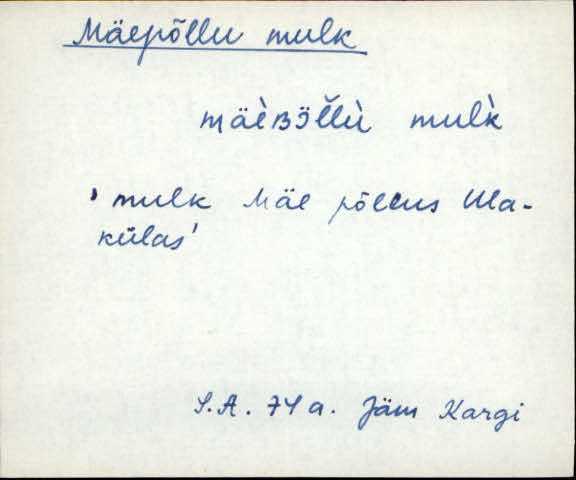 Mäepõllu mulk
mäèʙɜ̈l̆lù mul̀k
' mulk Mäe põllus Ula-
külas'
S.A. 74 a. Jäm Kargi